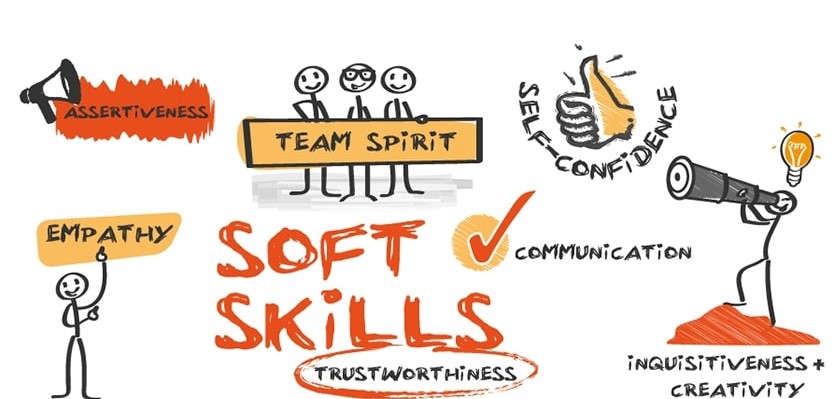 ASSERTiVENESS
TEAM SPiRiT
SELF-CONFiDENCE
EMPATHY
SOFT
SKiLLS
COMMUNiCATiON
TRUSTWORTHiNESS
iNQUiSiTiVENESS +
CREATiViTY